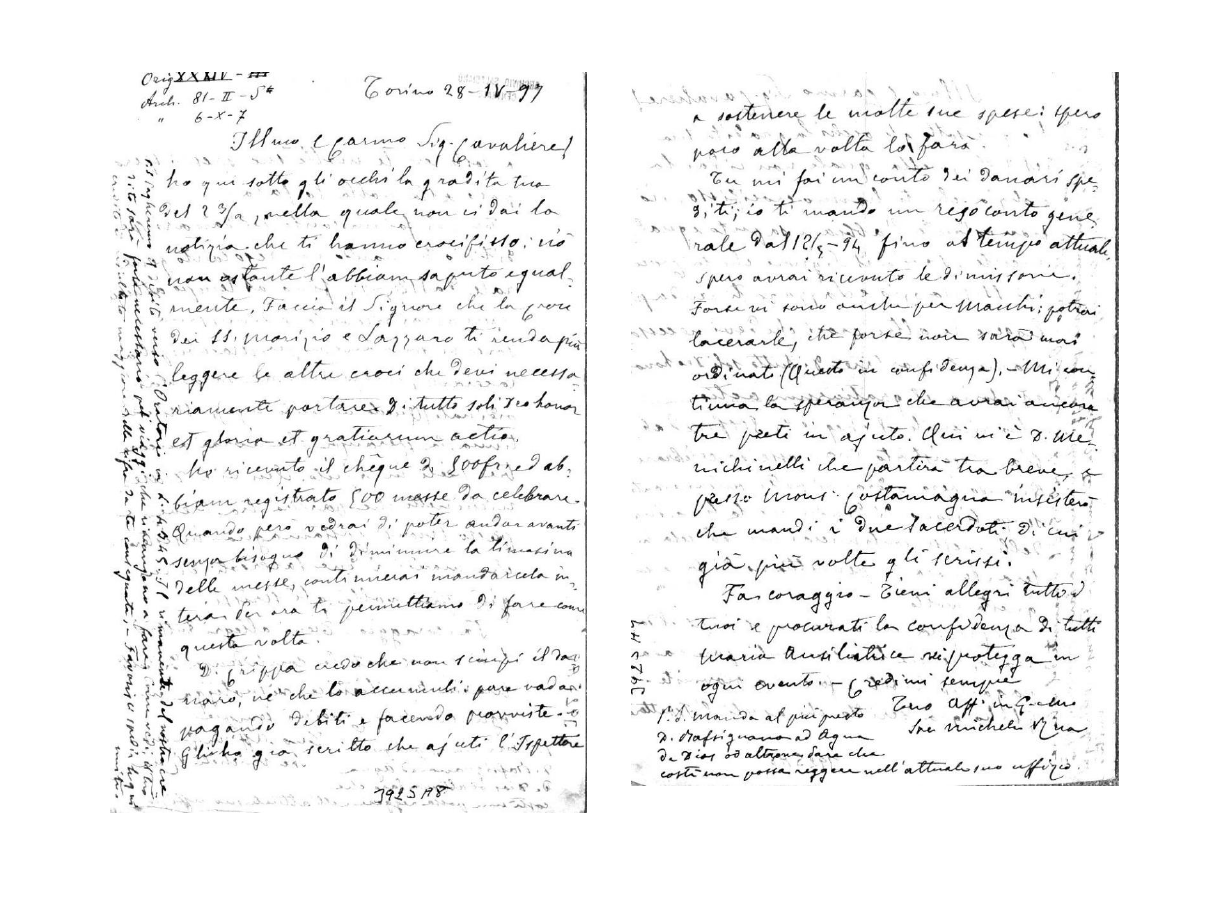 Orig XXXIV - III
Arch. 81 - II - 5ª
" 6-X-7
Torino 28-IV-97
Ill.mo e Car.mo Sig. Cavaliere!
ho qui sotto gli occhi la gradita tua
del 2 3/a, nella quale non ci dai la
notizia che ti hanno crocifisso; ciò
non ostante l'abbiam saputo egual-
mente. Faccia il Signore che la croce
dei SS. Morizio e Lazzaro ti renda più
leggere le altre croci che devi necessa-
riamente portare. Di tutto soli Deo honor
est gloria et gratiarum actio.
Ho ricevuto il chèque di 500 fr. ed ab-
biam registrato 500 messe da celebrare.
Quando però vedrai di poter andar avanti
senza bisogno di diminuire la limosina
delle messe, continuerai mandarcela in-
tera. Per ora ti permettiamo di fare come
questa volta.
D. Grippa credo che non sciupi il da-
naro, nè che lo accumuli: pare vada
pagando debiti e facendo provviste.
Gli ho già scritto che ajuti l'Ispettore
3925 A8
a sostenere le molte sue spese: spero
poco alla volta lo farà.
Tu mi fai un conto dei danari spe-
diti; io ti mando un resoconto gene-
rale dal 12/5-94 fino al tempo attuale,
spero avrai ricevuto le dimissorie.
Forse vi sono anche per Macchi; potrai
lacerarle, che forse non sarà mai
ordinato (Questo in confidenza). - Mi con-
tinua la speranza che avrai ancora
tre preti in ajuto. Qui vi è D. Me-
nichinelli che partirà tra breve, e
presso Mons. Costamagna insisterò
che mandi i due sacerdoti di cui
già più volte gli scrissi.
Fa coraggio - Tieni allegri tutti i
tuoi e procurati la confidenza di tutti
Maria Ausiliatrice vi protegga in
ogni evento. - Credimi sempre
Tuo aff. in G. e M.
Sac. Michele Rua
P.S. Manda al più presto
D. Rafsignano ad Agua
de Dios od altrove, dare che
costì non possa reggere nell'attuale suo uffizio.